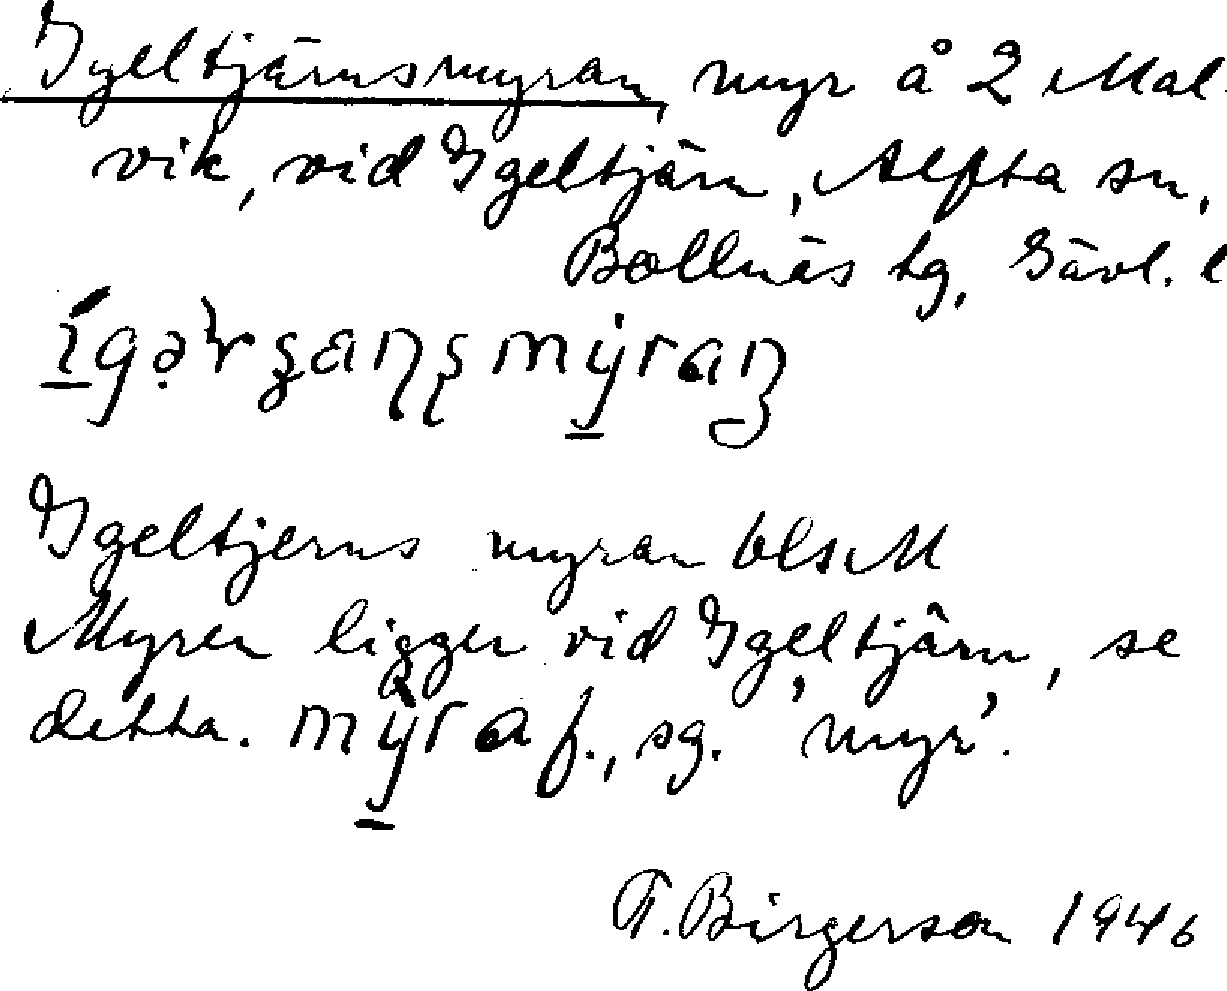 Igeltjärnsmyran, myr å 2 Mal-
vik, vid Igeltjärn, Alfta sn,
Bollnäs tg, Gävl. l
Igeltjerns myran blsM
Myren ligger vid Igeltjärn, se
detta. mýra f., sg. 'myr'.
F. Birgerson 1946